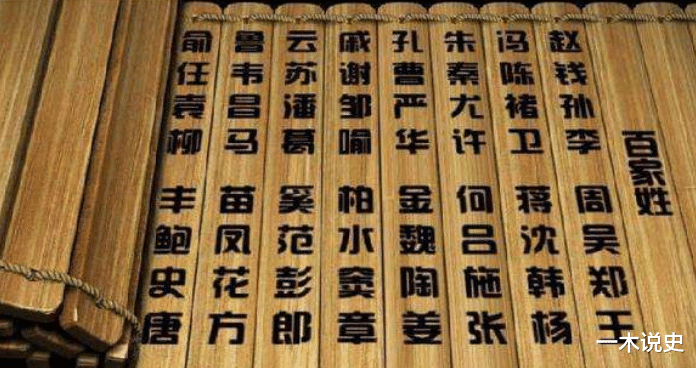 百家姓
赵钱孙李 周吴郑王
冯陈褚卫 蒋沈韩杨
朱秦尤许 何吕施张
孔曹严华 金魏陶姜
戚谢邹喻 柏水窦章
云苏潘葛 奚范彭郎
鲁韦昌马 苗凤花方
俞任袁柳 丰鲍史唐
一木说史